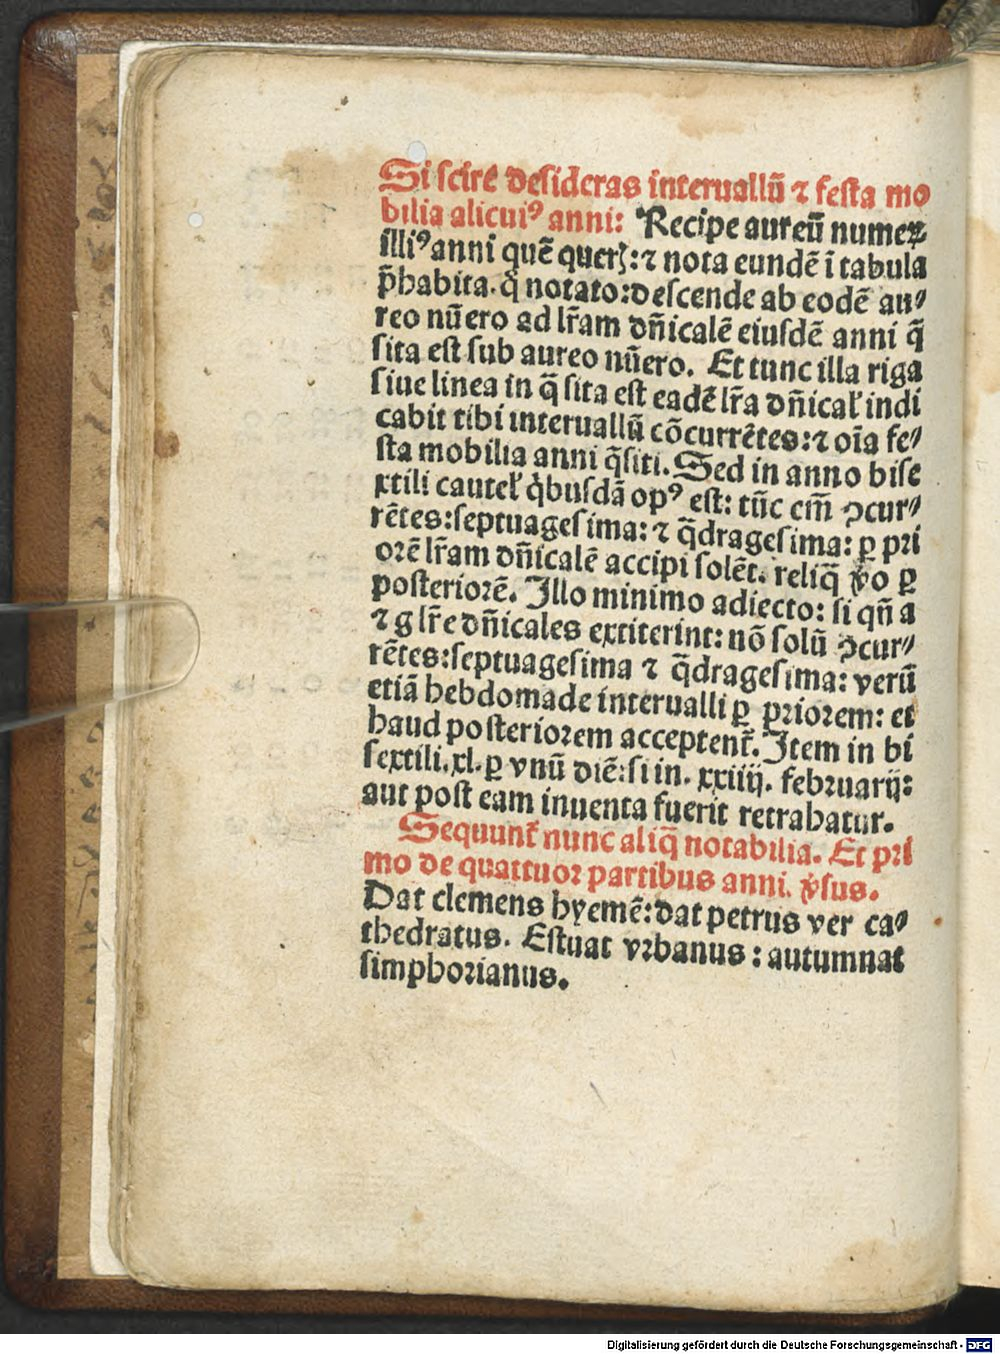 Si ſcirē deſideras interuallū ⁊ feſta mo
bilia alicuiꝰ anni: Recipe aureū numeꝝ
illiꝰ anni quē querꝭ: ⁊ nota eundē ī tabula
p̄habita. q̊ notato: deſcende ab eodē au⸗
reo nūero ad lr̄am dn̄icalē eiuſdē anni q̄
ſita eſt ſub aureo nūero. Et tunc illa riga
ſiue linea in q̄ ſita eſt eadē lr̄a dn̄icaƚ indi
cabit tibi interuallū cōcurrētes: ⁊ oīa fe⸗
ſta mobilia anni q̄ſiti. Sed in anno biſe
xtili cauteƚ q̇buſdā opꝰ eſt: tūc em̄ ꝯcur⸗
rētes: ſeptuageſima: ⁊ q̄drageſima: ꝑ pri
orē lr̄am dn̄icalē accipi ſolēt. reliq̄ v̄o ꝑ
poſteriorē. Illo minimo adiecto: ſi qn̄ a
⁊ g lr̄e dn̄icales extiterint: nō ſolū ꝯcur⸗
rētes: ſeptuageſima ⁊ q̄drageſima: verū
etiā hebdomade interualli ꝑ priorem: et
haud poſteriorem acceptent᷑. Item in bi
ſextili. xl. ꝑ vnū diē: ſi in. xxiiij. februarij:
aut poſt eam inuenta fuerit retrahatur.
Sequunt᷑ nunc aliq̄ notabilia. Et pri
mo de quattuor partibus anni. v̄ſus.
Dat clemens hyemē: dat petrus ver ca⸗
thedratus. Eſtuat vrbanus: autumnat
ſimphorianus.
Digitalisierung gefördert durch die Deutsche Forschungsgemeinschaft - DFG